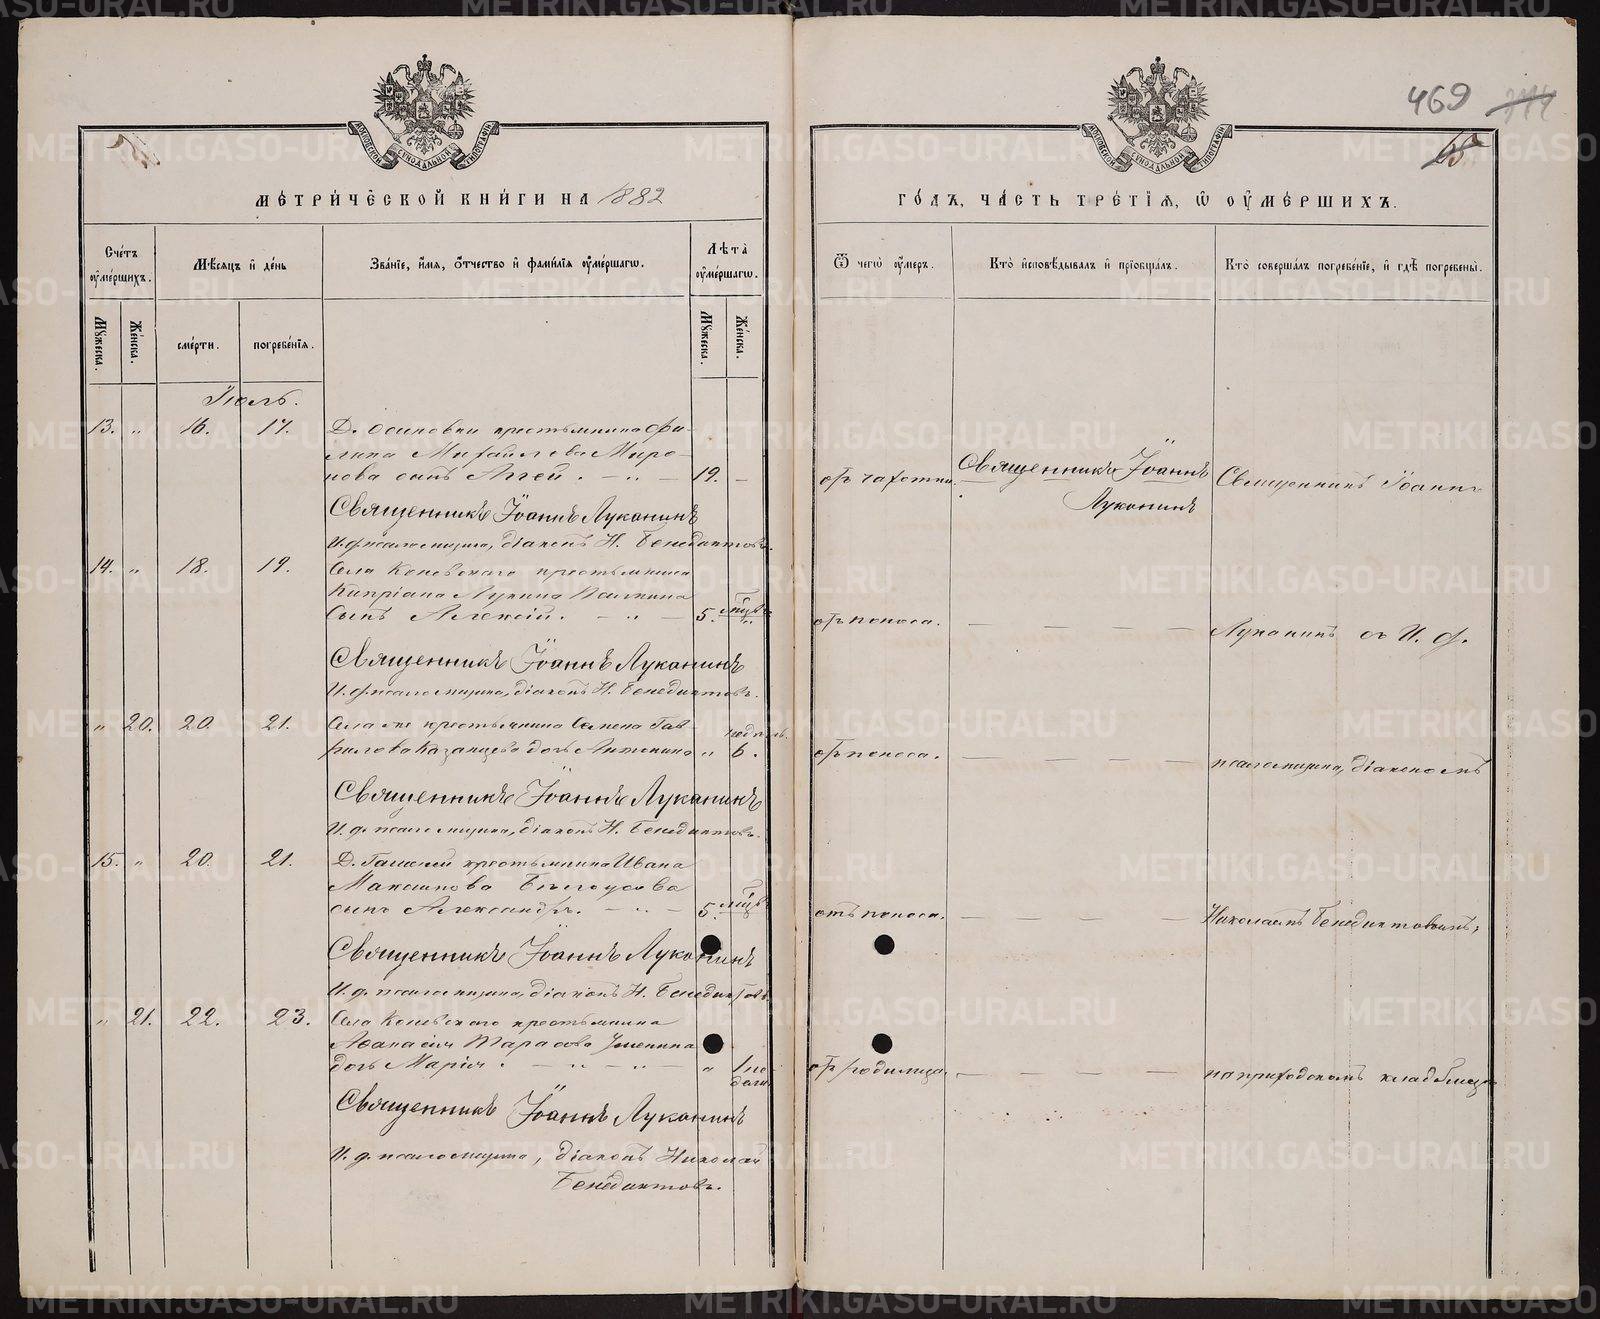 469
МЕТРИЧЕСКОЙ КНИГИ НА 1882
ГОДЪ, ЧАСТЬ ТРЕТІЯ, Ѡ ОУМЕРШИХЪ.
Счетъ оумершихъ.
Мѣсяцъ и день
Званіе, имя, отчество и фамилія оумершагѡ.
Лѣта оумершагѡ.
Ѿ чегѡ оумеръ.
Кто исповѣдывалъ и пріобщалъ.
Кто совершалъ погребеніе, и гдѣ погребены.
Мужеска.
Женска.
смерти.
погребенія.
Мужеска.
Женска.
Іюль.
13. " 16. 17. Д. Осиновки крестьянина Фи-
липа Михайлова Миро-
нова сынъ Аггей. — " — 19. —
отъ чахотки.
Священникъ Іоаннъ
Луканинъ
Священникъ Іоаннъ
Священникъ Іоаннъ Луканинъ
И. д. псаломщика, діаконъ Н. Бенедиктовъ.
14. " 18. 19. Села Коневскаго крестьянина
Кипріана Лукина
сынъ Алексій. — " — 5. мѣс.
отъ поноса. — — — —
Луканинъ съ И. д.
Священникъ Іоаннъ Луканинъ
И. д. псаломщика, діаконъ Н. Бенедиктовъ.
" 20. 20. 21. Села же крестьянина Семена Гав-
рилова Казанцева дочь Антонина " 6. недѣль.
отъ поноса. — — — —
псаломщика, діакономъ
Священникъ Іоаннъ Луканинъ
И. д. псаломщика, діаконъ Н. Бенедиктовъ.
15. " 20. 21. Д. крестьянина Ивана
Максимова Бѣлоусова
сынъ Александръ. — " — 5. мѣс.
отъ поноса. — — — —
Николаемъ Бенедиктовымъ,
Священникъ Іоаннъ Луканинъ
И. д. псаломщика, діаконъ Н. Бенедиктовъ.
" 21. 22. 23. Села Коневскаго крестьянина
Аѳанасія Тарасова
дочь Марія. — " — " — " 1 не-
дѣли
отъ родимца. — — — —
на приходскомъ кладбищѣ
Священникъ Іоаннъ Луканинъ
И. д. псаломщика, діаконъ Николай
Бенедиктовъ.
METRIKI.GASO-URAL.RU